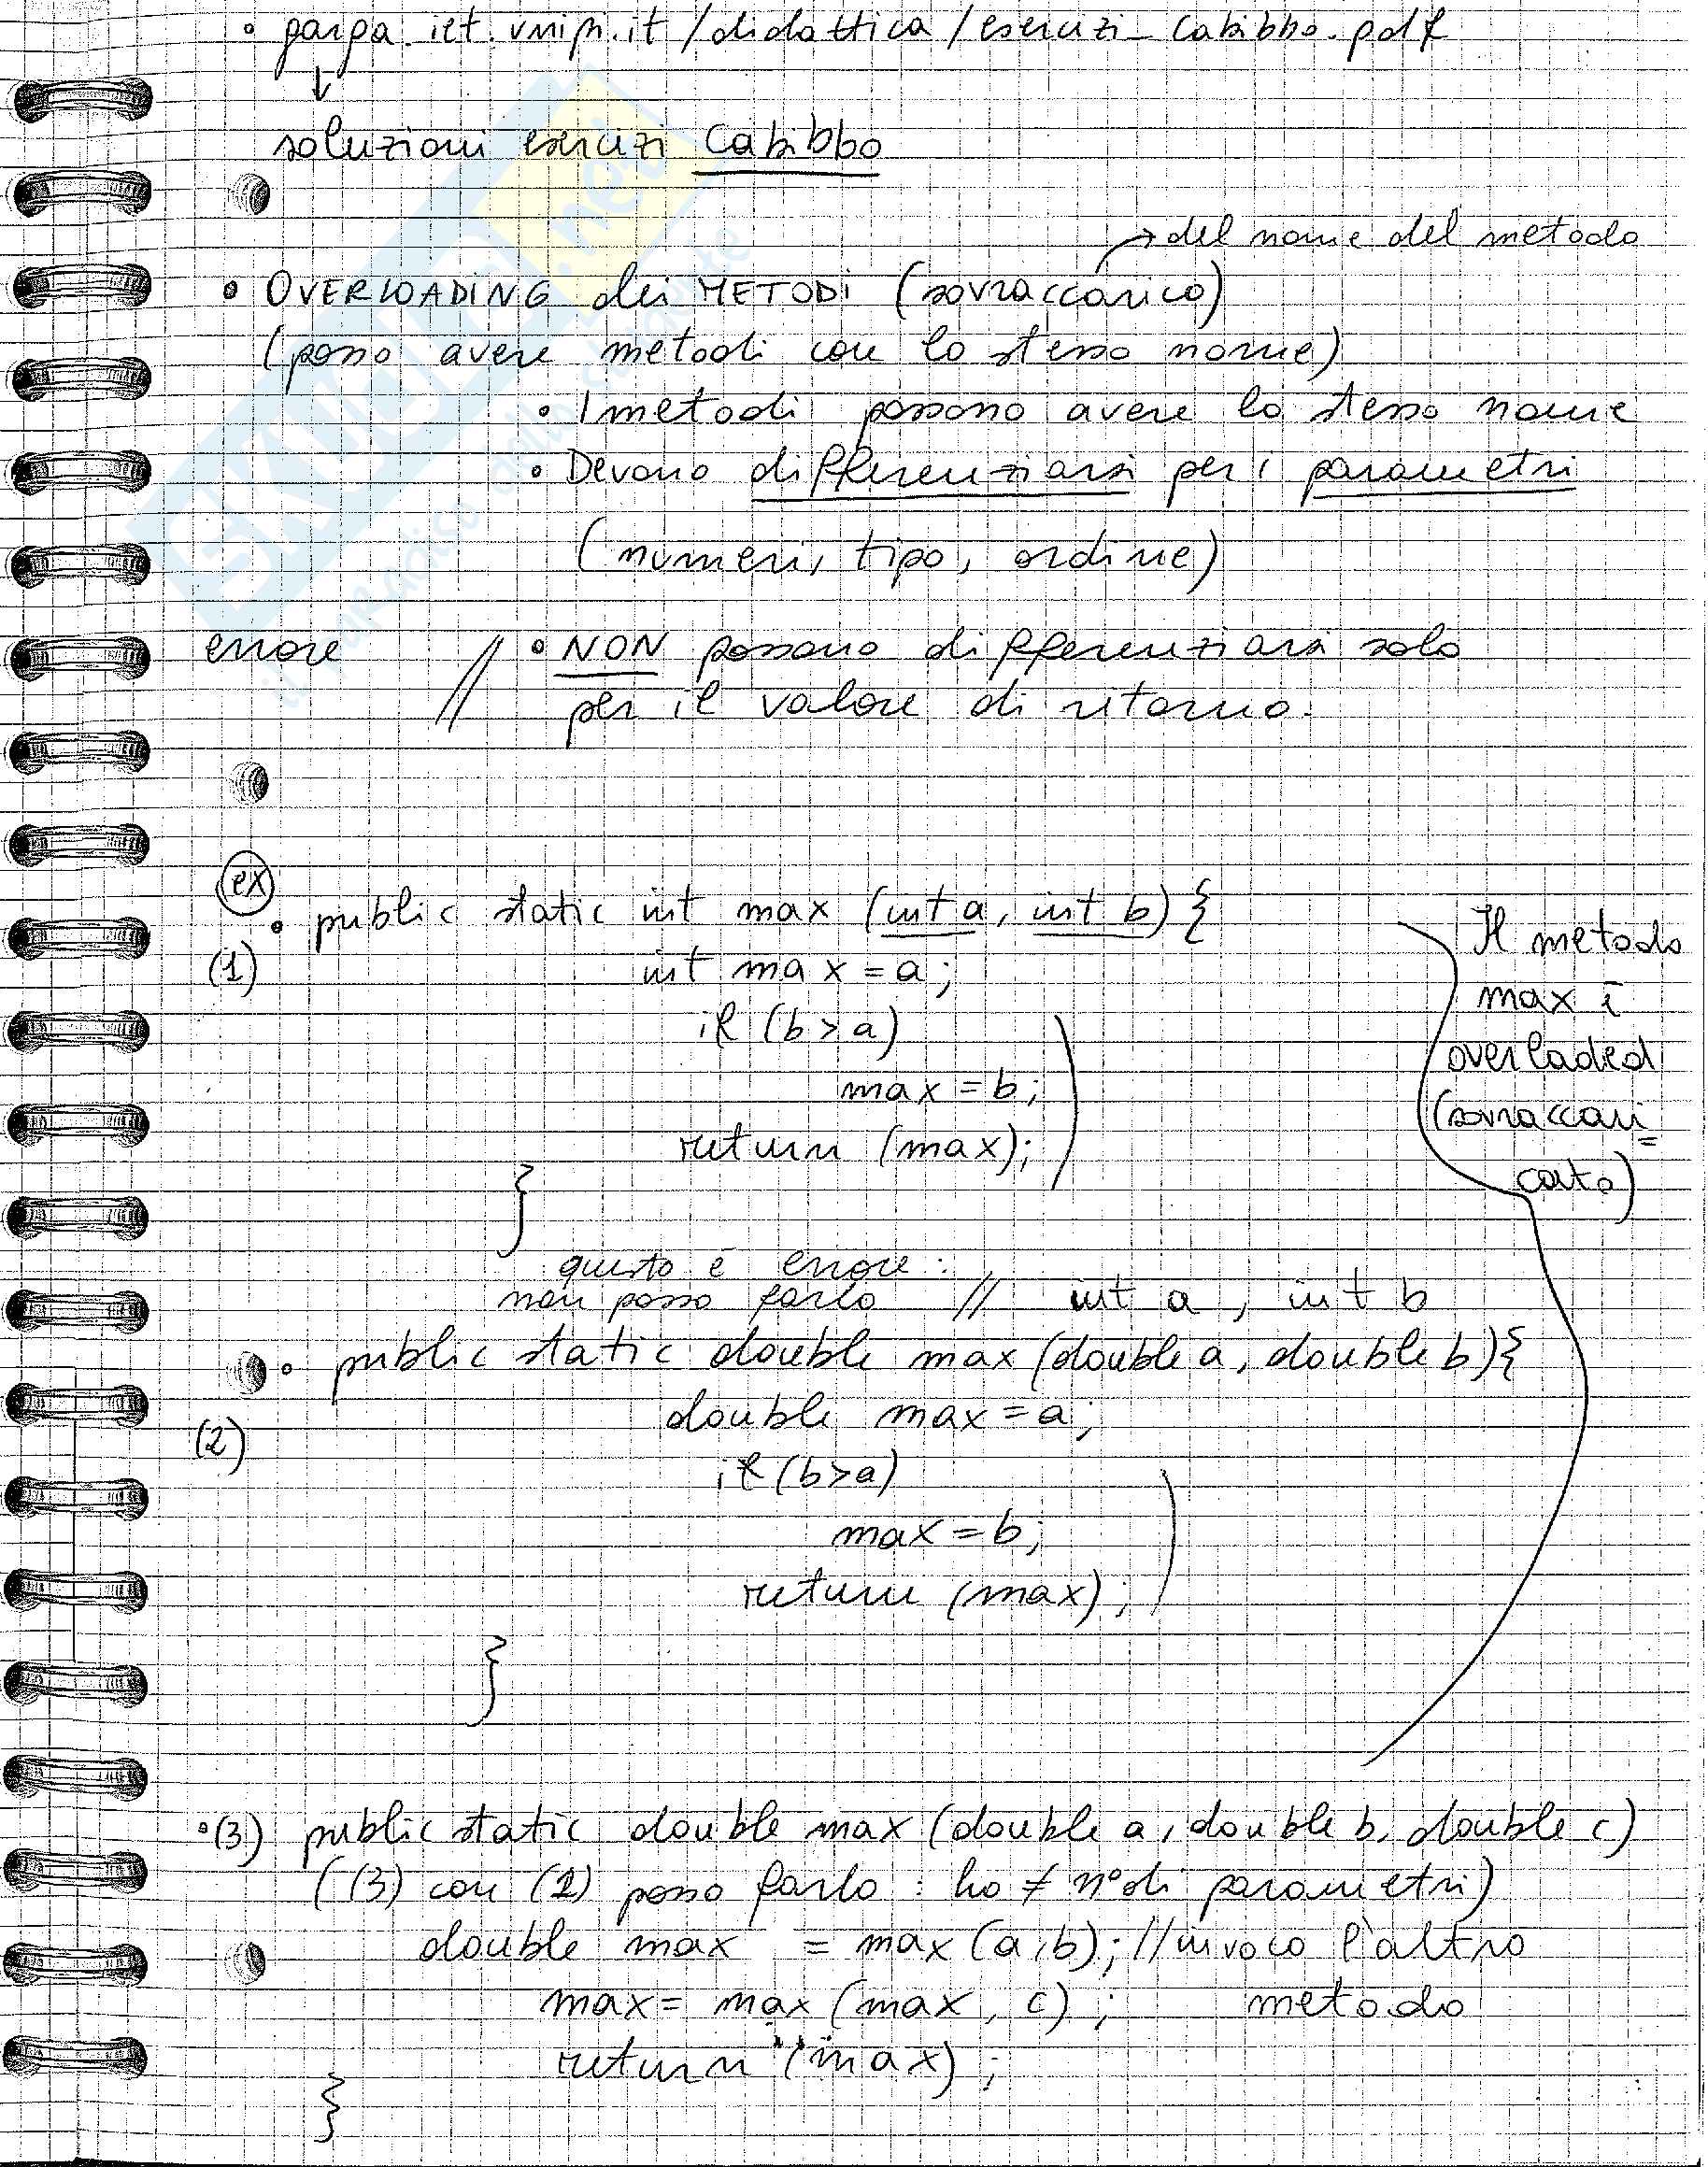 • garga.iet.unipi.it/didattica/esercizi_cabibbo.pdf
↓
soluzioni esercizi Cabibbo
→ del nome del metodo
• OVERLOADING dei METODI (sovraccarico)
(posso avere metodi con lo stesso nome)
• I metodi possono avere lo stesso nome
• Devono differenziarsi per i parametri
(numeri, tipo, ordine)
errore // • NON possono differenziarsi solo
per il valore di ritorno.
ex
• public static int max (int a, int b) {
(1) int max = a;
if (b > a)
max = b;
return (max);
}
Il metodo
max è
overladed
(sovraccari=
cato)
questo è errore:
non posso farlo // int a, int b
• public static double max (double a, double b) {
double max = a;
(2)
if (b>a)
max = b;
return (max);
}
• (3) public static double max (double a, double b, double c)
((3) con (2) posso farlo : ho ≠ n° di parametri)
double max = max (a,b); //invoco l'altro
max = max (max, c); metodo
return (max);
}
SKUOLA.net